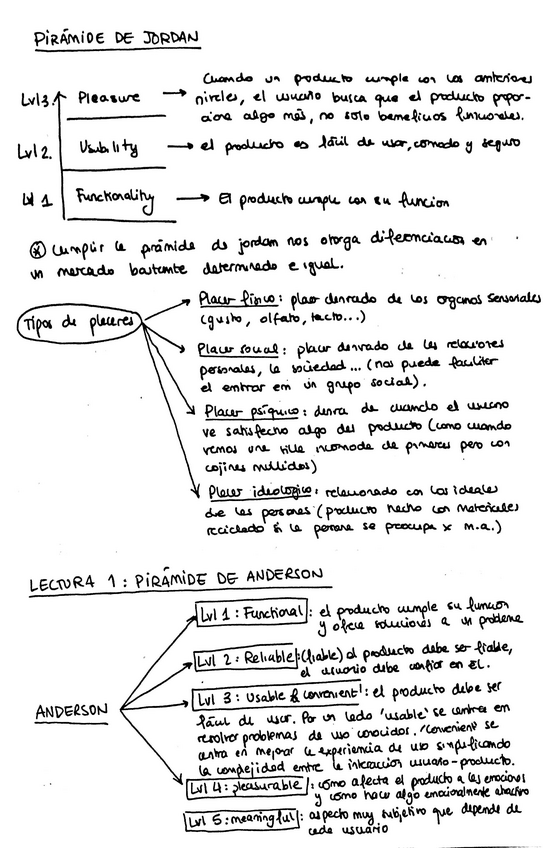 PIRÁMIDE DE JORDAN
Lvl 3. Pleasure → Cuando un producto cumple con los anteriores
niveles, el usuario busca que el producto propor-
cione algo más, no solo beneficios funcionales.
Lvl 2. Usability → el producto es fácil de usar, comodo y seguro
Lvl 1 Functionality → El producto cumple con su funcion
* Cumplir la pirámide de jordan nos otorga diferenciación en
un mercado bastante determinado e igual.
Tipos de placeres
Placer físico: placer derivado de los organos sensoriales
(gusto, olfato, tacto...)
Placer social: placer derivado de las relaciones
personales, la sociedad... (nos puede facilitar
el entrar em un grupo social).
Placer psíquico: deriva de cuando el usuario
ve satisfecho algo del producto (como cuando
vemos una silla incomoda de primeras pero con
cojines mullidos)
Placer ideologico: relacionado con los ideales
de las personas (producto hecho con materiales
reciclado si la persona se preocupa x m.a.)
LECTURA 1: PIRÁMIDE DE ANDERSON
ANDERSON
Lvl 1: Functional: el producto cumple su funcion
y ofrece soluciones a un problema
Lvl 2: Reliable: (fiable) el producto debe ser fiable,
el usuario debe confiar en ÉL.
Lvl 3: Usable & convenient: el producto debe ser
fácil de usar. Por un lado 'usable' se centra en
resolver problemas de uso conocidos. 'Convenient' se
centra en mejorar la experiencia de uso simplificando
la complejidad entre la interacción usuario-producto.
Lvl 4: pleasurable: cómo afecta el producto a las emociones
y cómo hacer algo emocionalmente atractivo
Lvl 5: meaningful: aspecto muy subjetivo que depende de
cada usuario